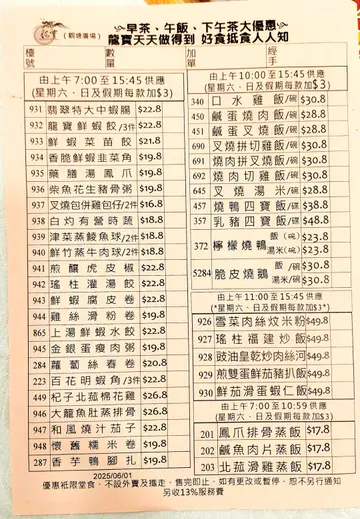 龍寶
(觀塘廣場)
早茶、午飯、下午茶大優惠
龍寶天天做得到 好食抵食人人知
檯號 數量 加單 經手
由上午7:00至15:45供應
(星期六、日及假期每款加$3)
931 翡翠特大中蝦腸 $22.8
932 龍寶鮮蝦餃/3件 $22.8
933 鮮蝦菜苗餃 $21.8
934 香脆鮮蝦韭菜角 $19.8
935 藥膳湯鳳爪 $19.8
936 柴魚花生豬骨粥 $19.8
937 叉燒包併雞包仔/2件 $16.8
938 白灼有營時蔬 $18.8
939 津菜蒸鯪魚球/2件 $18.8
940 鮮竹蒸牛肉球/2件 $18.8
941 煎釀虎皮椒 $22.8
942 瑤柱灌湯餃 $22.8
943 鮮蝦腐皮卷 $22.8
944 雞絲滑粉卷 $19.8
865 上湯鮮蝦水餃 $22.8
945 金銀蛋瘦肉粥 $19.8
284 蘿蔔絲春卷 $20.8
223 百花明蝦角/3件 $22.8
449 杞子北菰棉花雞 $26.8
946 大龍魚肚蒸排骨 $26.8
947 和風燒汁茄子 $22.8
948 懷舊糯米卷 $19.8
287 香芋鴨腳扎 $19.8
由上午10:00至15:45供應
(星期六、日及假期每款加$3)
340 口水雞飯/碗 $30.8
450 鹹蛋燒肉飯/碗 $28.8
451 鹹蛋叉燒飯/碗 $28.8
690 叉燒拼切雞飯/碗 $30.8
691 燒肉拼叉燒飯/碗 $30.8
692 燒肉切雞飯/碗 $30.8
645 叉燒湯米/碗 $28.8
457 燒鴨四寶飯/碟 $38.8
357 乳豬四寶飯/碟 $48.8
372 檸檬燒鴨 飯(碗) $23.8
湯米(碗) $23.8
5284 脆皮燒鵝 飯/碗 $30.8
湯米/碗 $30.8
由上午11:00至15:45供應
(*星期六、日及假期每款加$3*)
926 雪菜肉絲炆米粉 $49.8
927 瑤柱福建炒飯 $49.8
928 豉油皇乾炒肉絲河 $49.8
929 煎雙蛋鮮茄豬扒飯 $49.8
930 鮮茄滑蛋蝦仁飯 $49.8
由上午7:00至10:59供應
(星期六、日及假期每款加$3)
201 鳳爪排骨蒸飯 $17.8
202 鹹魚肉片蒸飯 $17.8
203 北菰滑雞蒸飯 $17.8
2025/06/01
優惠祇限堂食,不設外賣及攜走、售完即止,如有更改或暫停,恕不另行通知
另收13%服務費